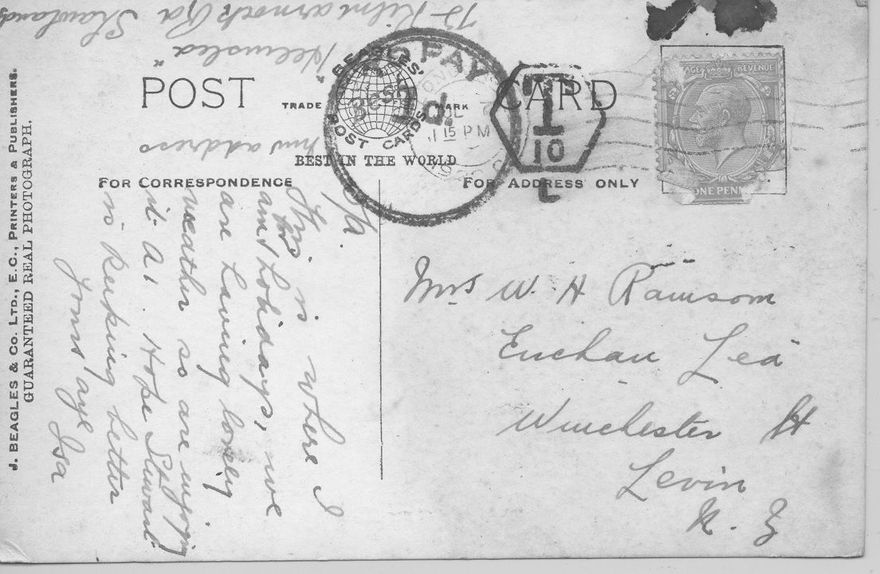 POST CARD
TRADE MARK
BEAGLES'
POST CARDS
BEST IN THE WORLD
FOR CORRESPONDENCE
FOR ADDRESS ONLY
J. BEAGLES & CO. LTD., E.C., PRINTERS & PUBLISHERS.
GUARANTEED REAL PHOTOGRAPH.
TO PAY
1d
15 PM
T
10
L
REVENUE
ONE PENN
This is where I
am holidays, we
are having lovely
weather so are enjoying
it A1. Hope Stewart
is keeping better
Yours aye
Isa
address
75 Kilmarnock Rd Shawlands
Mrs W. H Ransom
Euchan Lea
Winchester St
Levin
N. Z